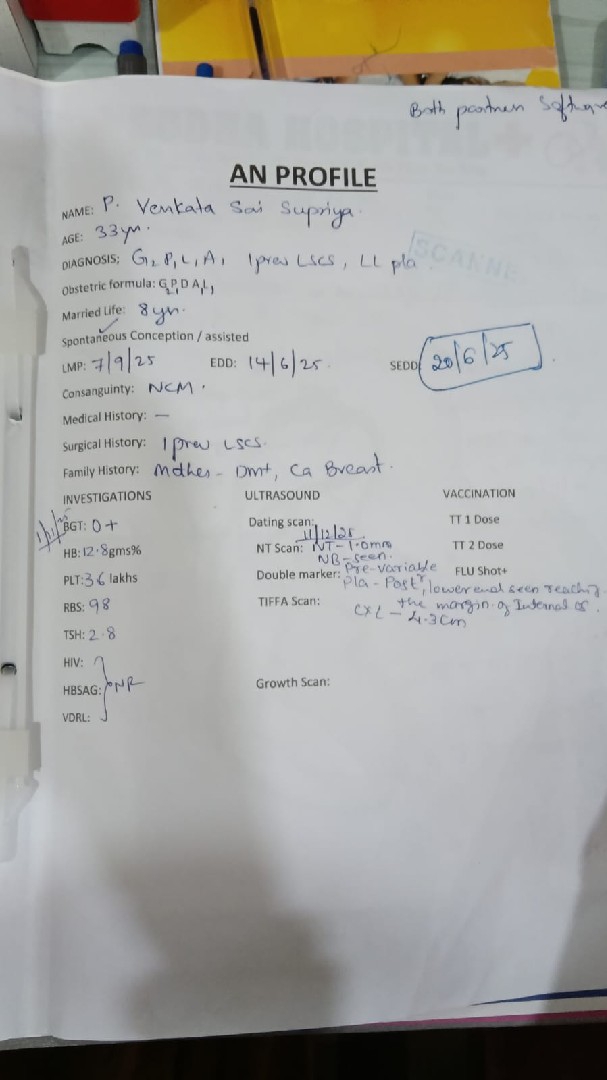 Both partners Software
AN PROFILE
NAME: P. Venkata Sai Supriya.
AGE: 33yr.
SCANNE
DIAGNOSIS: G2 P1 L1 A1 1 prev LSCS, LL pla
Obstetric formula: G2P1D A1L1
Married Life: 8yr.
Spontaneous Conception / assisted
LMP: 7/9/25 EDD: 14/6/25. SEDD 20/6/25
Consanguinty: NCM.
Medical History: —
Surgical History: 1 prev LSCS.
Family History: Mother - Dmt, Ca Breast.
INVESTIGATIONS ULTRASOUND VACCINATION
BGT: O+ Dating scan: TT 1 Dose
11/12/25
HB: 12.8gms% NT Scan: NT-1.0mm TT 2 Dose
NB-seen.
PLT: 3.6 lakhs Double marker: Pre-variable FLU Shot+
Pla-Postr, lower end seen reaching
RBS: 98 TIFFA Scan: the margin of Internal os.
CXL - 4.3cm
TSH: 2.8
HIV:
HBSAG: NR Growth Scan:
VDRL: